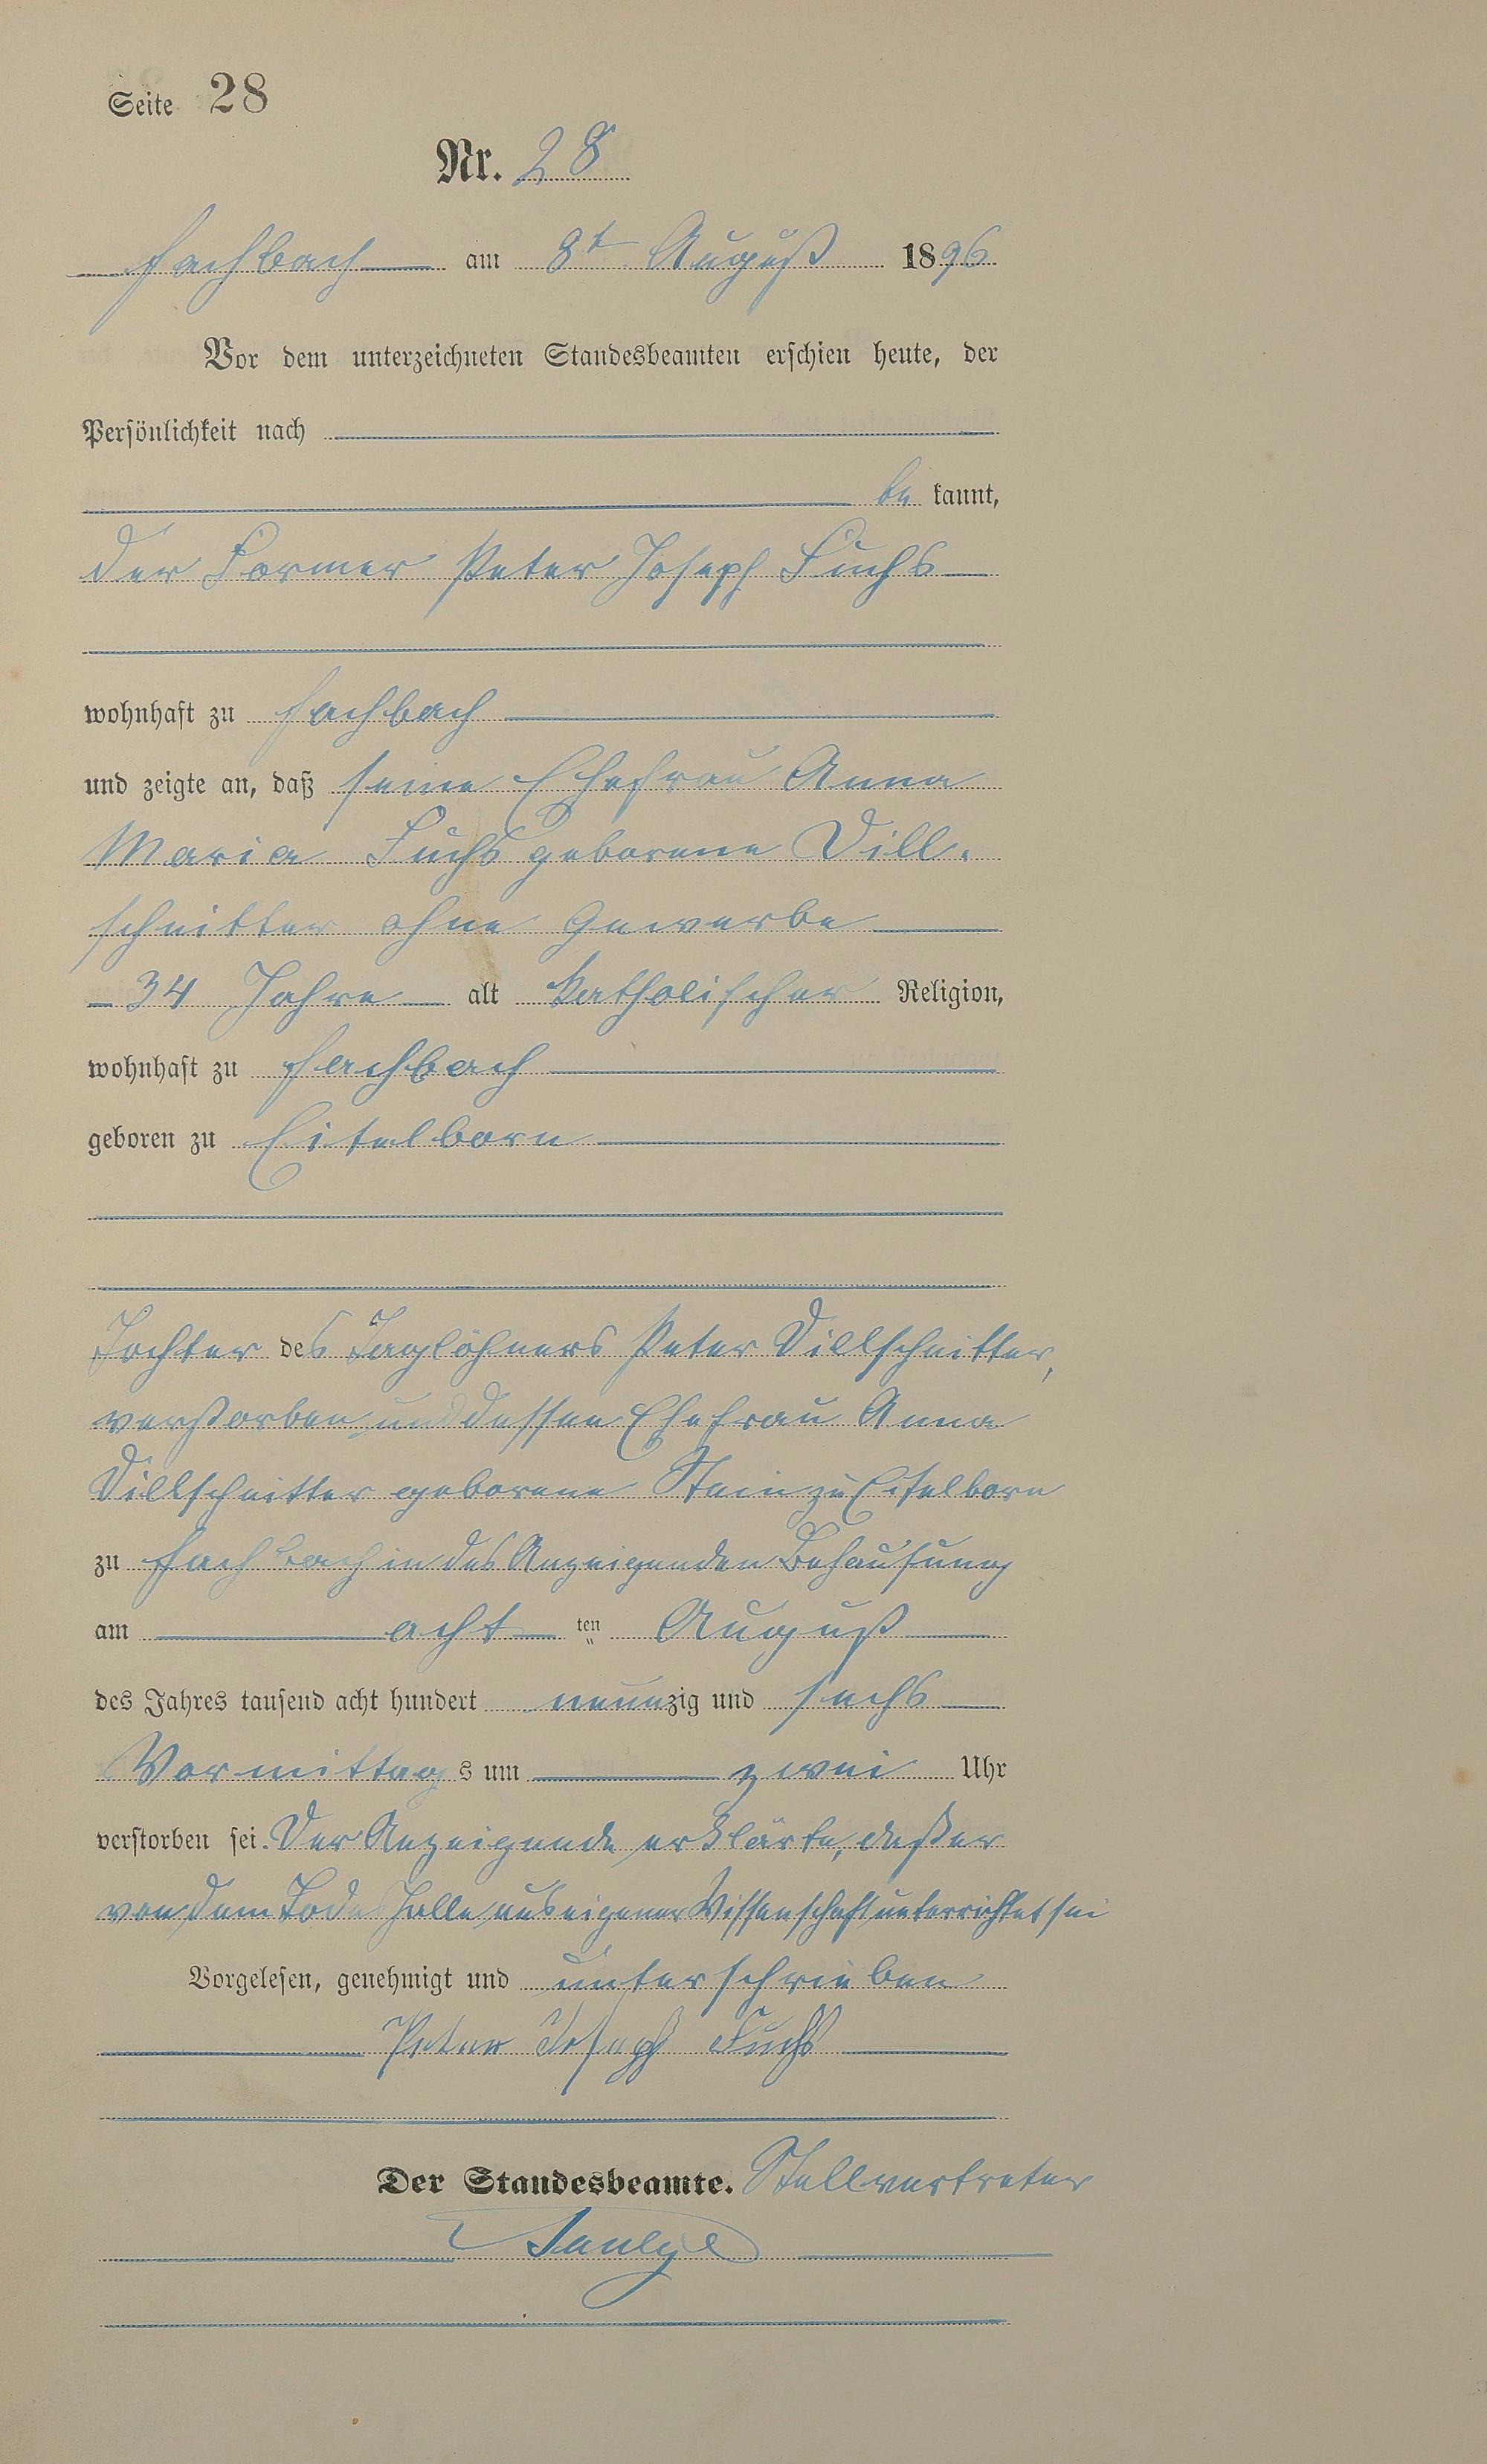 Seite 28
Nr. 28
Fachbach am 8t August 1896
Vor dem unterzeichneten Standesbeamten erschien heute, der
Persönlichkeit nach
be kannt,
der Former Peter Joseph Fuchs
wohnhaft zu Fachbach
und zeigte an, daß seine Ehefrau Anna
Maria Fuchs geborene Dill-
schnitter ohne Gewerbe
34 Jahre alt katholischer Religion,
wohnhaft zu Fachbach
geboren zu Eitelborn
Tochter des Taglöhners Peter Dillschnitter,
verstorben und dessen Ehefrau Anna
Dillschnitter geborene Stein zu Eitelborn
zu Fachbach in des Anzeigenden Behausung
am acht ten August
des Jahres tausend acht hundert neunzig und sechs
Vormittags um zwei Uhr
verstorben sei. Der Anzeigende erklärte, daß er
von dem Todesfalle aus eigener Wissenschaft unterrichtet sei
Vorgelesen, genehmigt und unterschrieben
Peter Joseph Fuchs
Der Standesbeamte. Stellvertreter